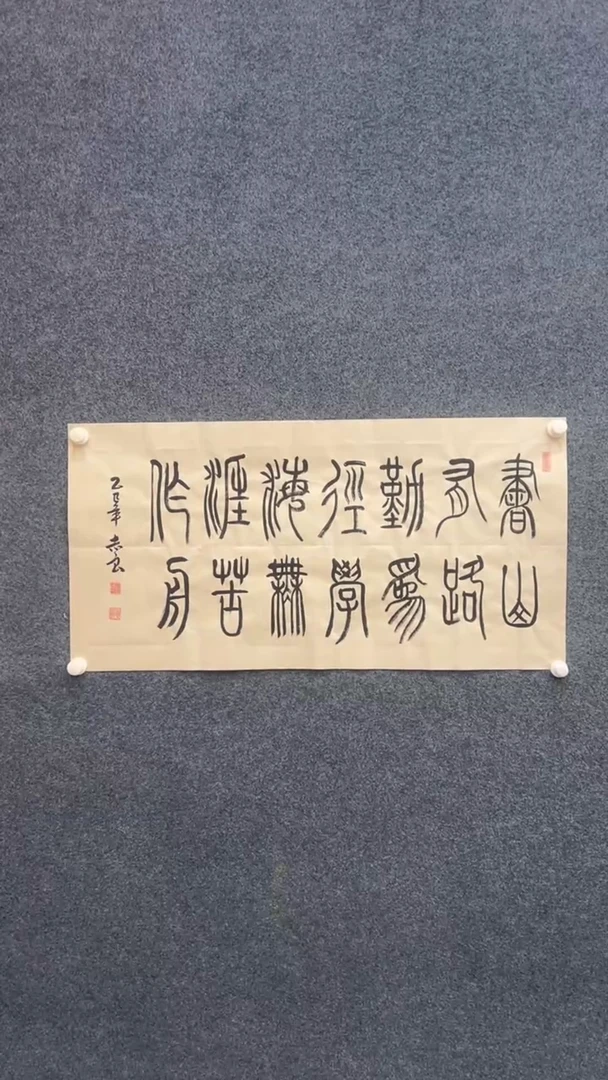 書山
有路
勤為
徑學
海無
涯苦
作舟
乙巳年